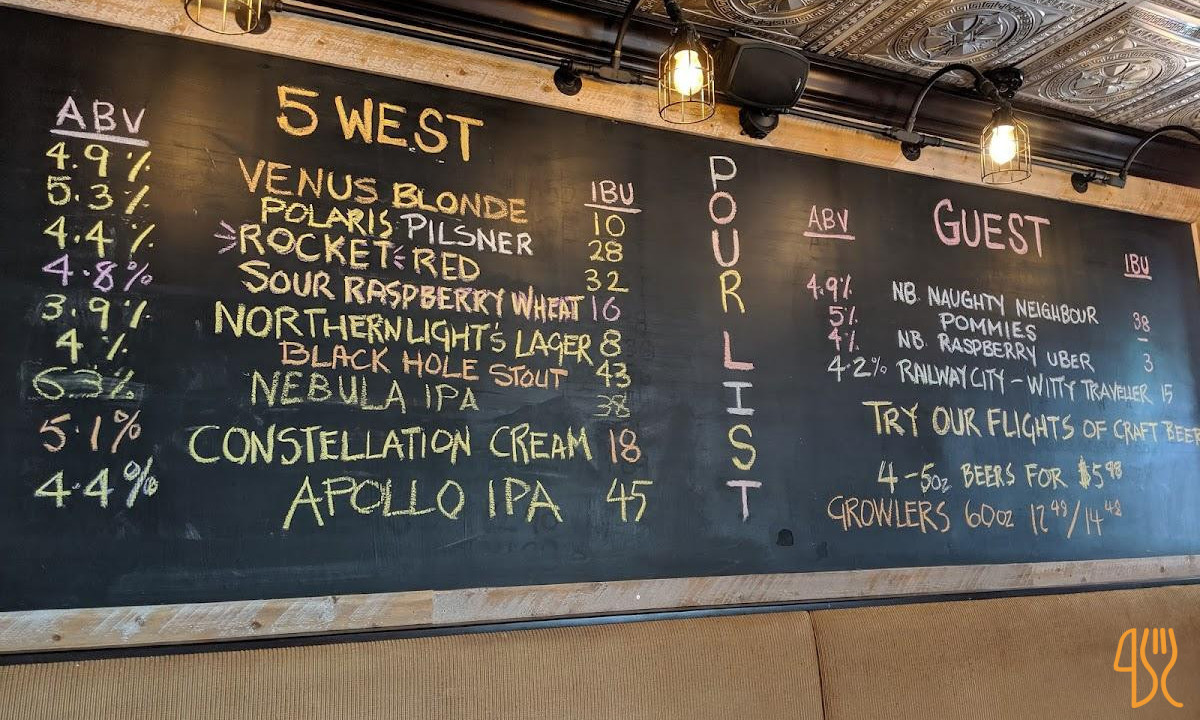 5 WEST
ABV
IBU
4.9% VENUS BLONDE 10
5.3% POLARIS PILSNER 28
4.4% ROCKET RED 32
4.8% SOUR RASPBERRY WHEAT 16
3.9% NORTHERNLIGHT'S LAGER 8
4% BLACK HOLE STOUT 43
6.3% NEBULA IPA 38
5.1% CONSTELLATION CREAM 18
4.4% APOLLO IPA 45
POUR LIST
GUEST
ABV
IBU
4.9% NB. NAUGHTY NEIGHBOUR 38
5% POMMIES –
4% NB. RASPBERRY UBER 3
4.2% RAILWAY CITY – WITTY TRAVELLER 15
TRY OUR FLIGHTS OF CRAFT BEER
4-5oz BEERS FOR $5.98
GROWLERS 60oz 12.48/14.48